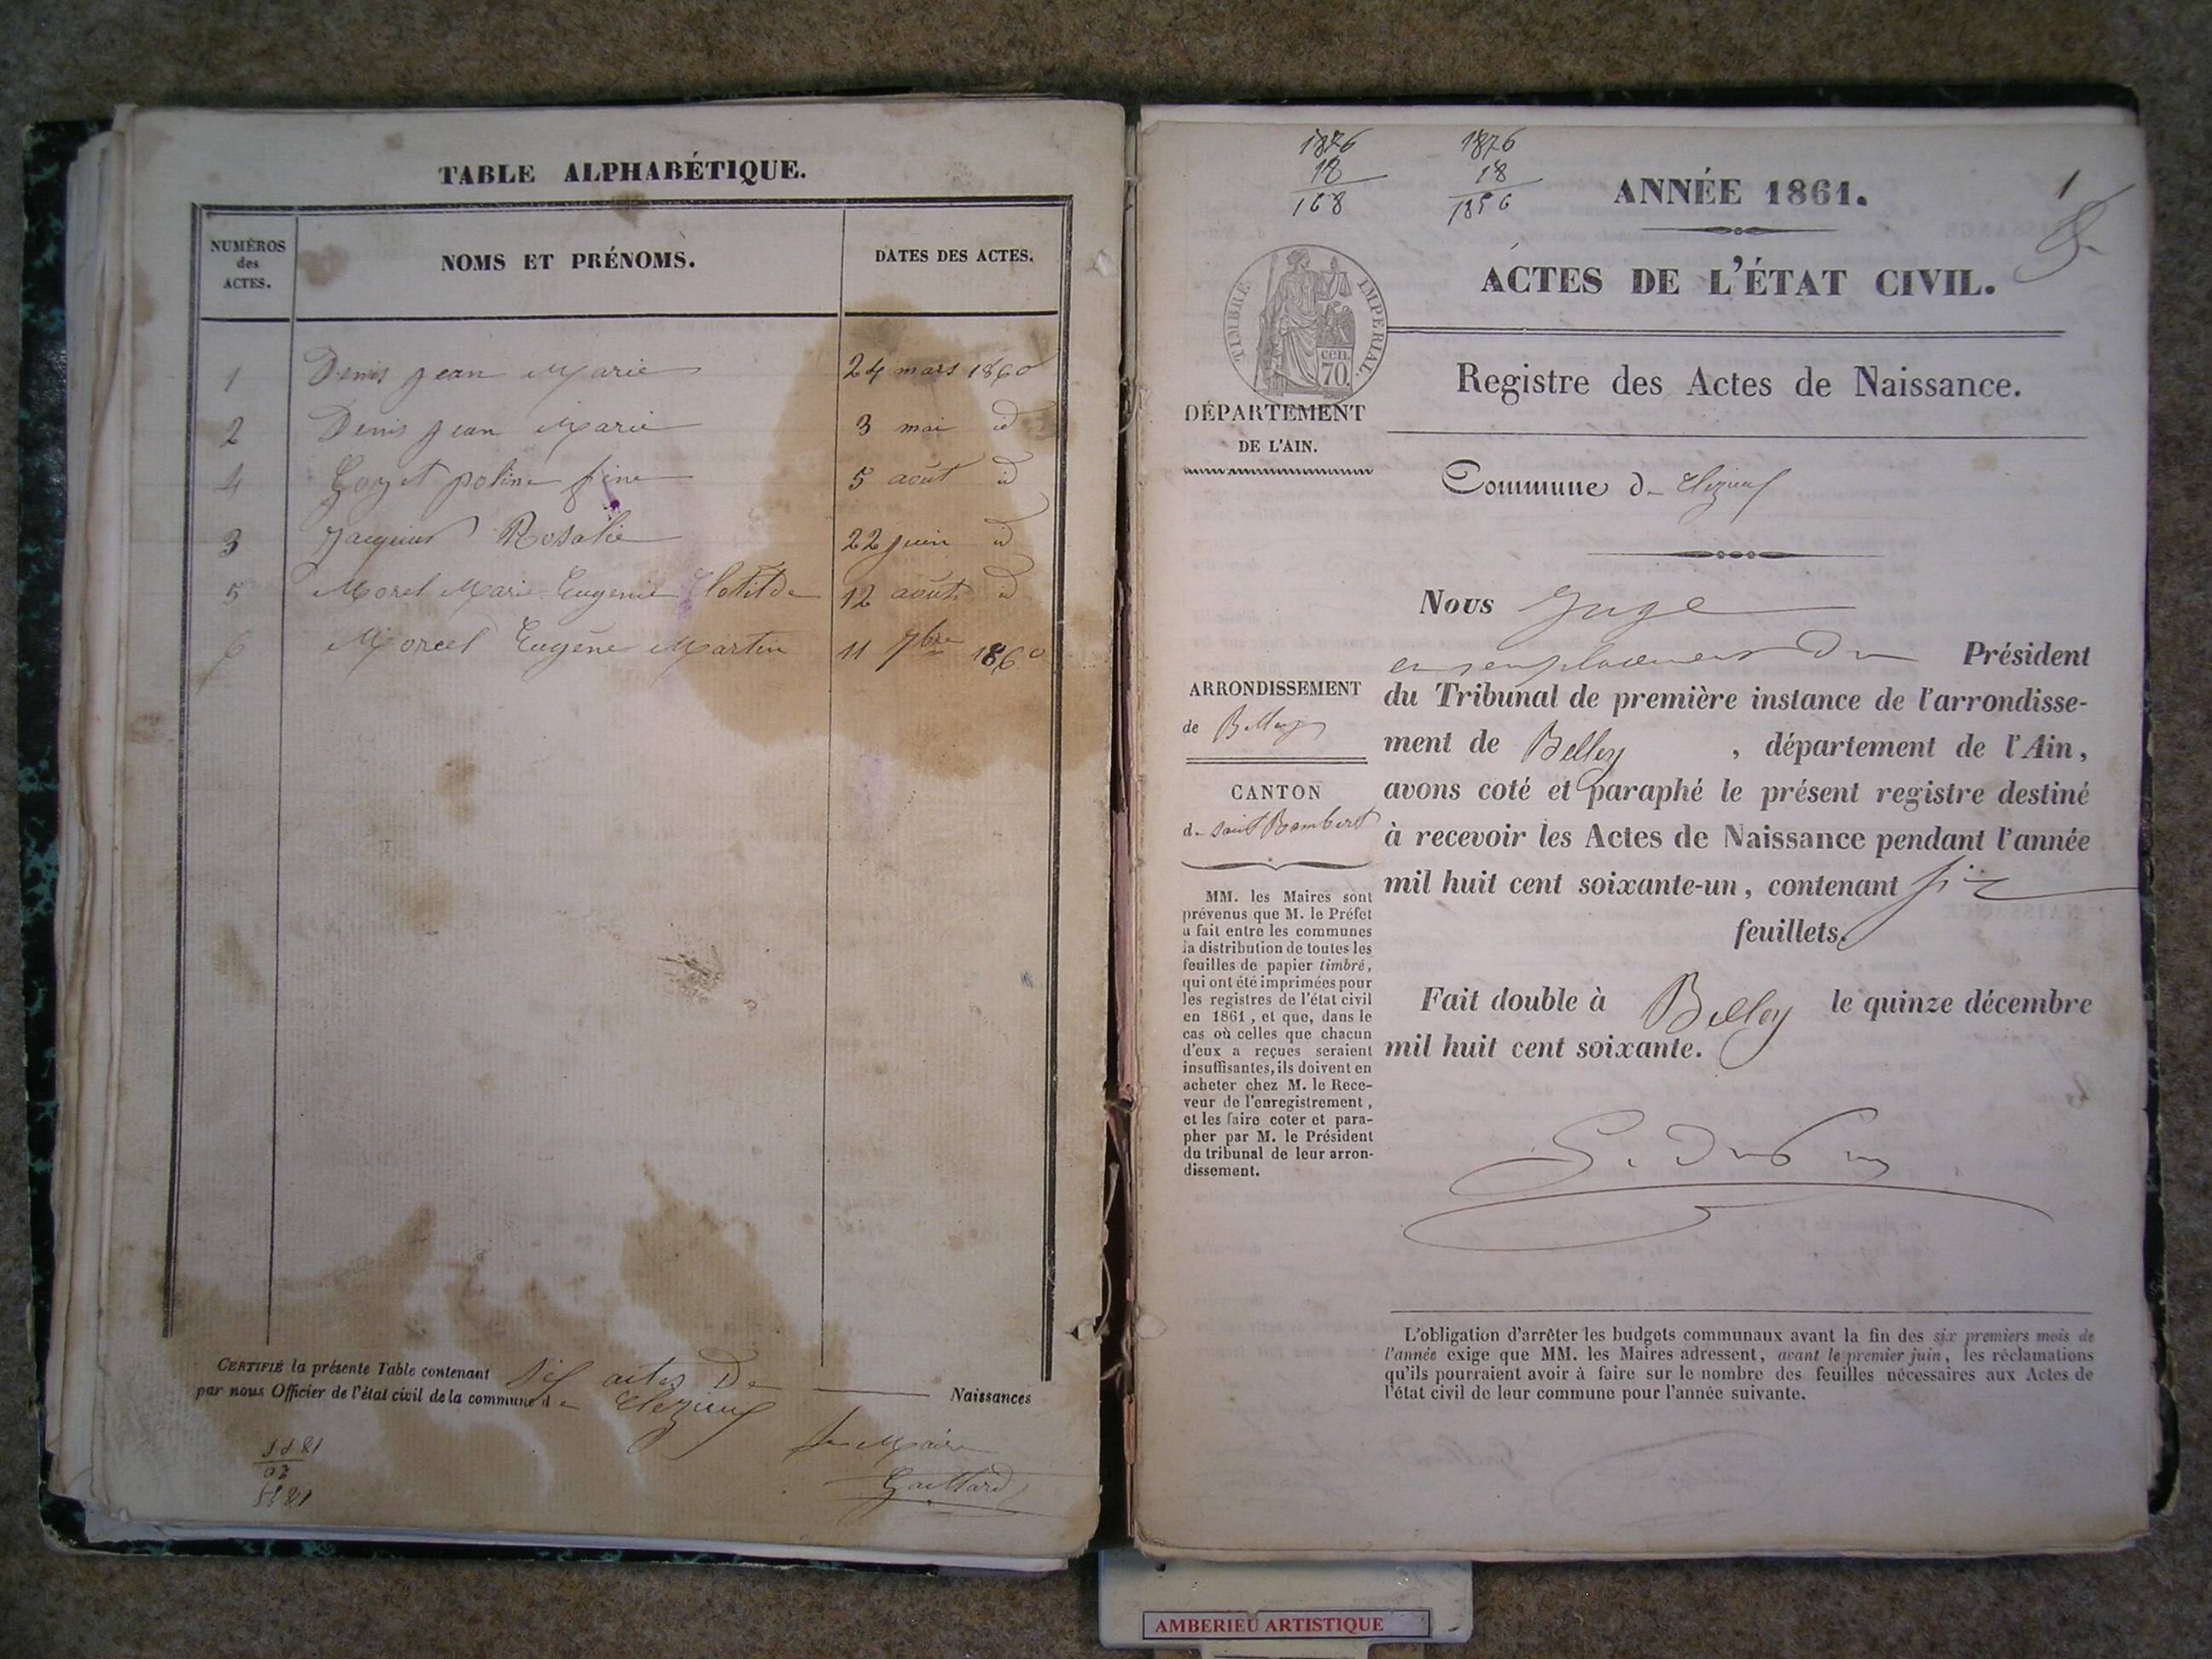 TABLE ALPHABÉTIQUE.
NUMÉROS des ACTES. NOMS ET PRÉNOMS. DATES DES ACTES.
1 Denis Jean Marie 24 mars 1860
2 Denis Jean Marie 3 mai id
4 Goyet poline fine 5 août id
3 Jacquier Rosalie 22 juin id
5 Morel Marie Eugenie Clotilde 12 août id
6 Morcel Eugène Martin 11 7bre 1860
CERTIFIÉ la présente Table contenant six actes de Naissances
par nous Officier de l'état civil de la commune de Cleyzieu
Le Maire
Gaillard
1876 1876
18 18
168 1856
1
ANNÉE 1861.
ACTES DE L'ÉTAT CIVIL.
TIMBRE IMPERIAL.
cen.
70.
Registre des Actes de Naissance.
DÉPARTEMENT
DE L'AIN.
Commune de Cleyzieu
Nous Juge
en remplacement du Président
du Tribunal de première instance de l'arrondisse-
ment de Belley , département de l'Ain,
avons coté et paraphé le présent registre destiné
à recevoir les Actes de Naissance pendant l'année
mil huit cent soixante-un, contenant six
feuillets.
Fait double à Belley le quinze décembre
mil huit cent soixante.
ARRONDISSEMENT
de Belley
CANTON
de Saint Rambert
MM. les Maires sont
prévenus que M. le Préfet
a fait entre les communes
la distribution de toutes les
feuilles de papier timbré,
qui ont été imprimées pour
les registres de l'état civil
en 1861, et que, dans le
cas où celles que chacun
d'eux a reçues seraient
insuffisantes, ils doivent en
acheter chez M. le Rece-
veur de l'enregistrement,
et les faire coter et para-
pher par M. le Président
du tribunal de leur arron-
dissement.
L'obligation d'arrêter les budgets communaux avant la fin des six premiers mois de
l'année exige que MM. les Maires adressent, avant le premier juin, les réclamations
qu'ils pourraient avoir à faire sur le nombre des feuilles nécessaires aux Actes de
l'état civil de leur commune pour l'année suivante.
AMBERIEU ARTISTIQUE